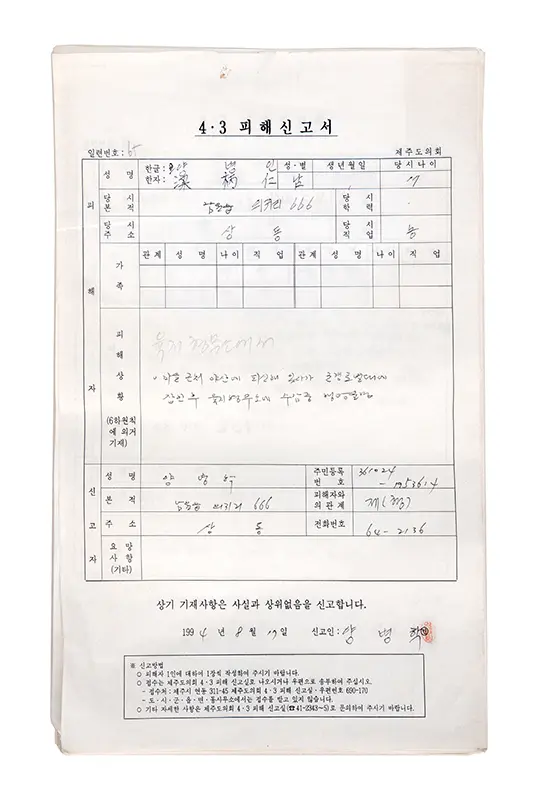 4·3 피해신고서
일련번호: 65 제주도의회
성 명 한글: 양 병 인 성·별 생년월일 당시나이
한자: 梁 仁 남
피해자
당시본적 남원읍 의귀리 666 당시학력
당시주소 상 동 당시직업 농
가족 관계 성 명 나이 직 업 관계 성 명 나이 직 업
피해상황
(6하원칙에 의거 기재)
육지형무소에서
육지형무소에 수감중 행방불명
신고자
성 명 양 병 주민등록번호 361024
본 적 남원읍 의귀리 666 피해자와의 관계 제(형)
주 소 상 동 전화번호 64-2136
요망사항(기타)
상기 기재사항은 사실과 상위없음을 신고합니다.
1994년 8월 17일 신고인: 양 병
※ 신고방법
○ 피해자 1인에 대하여 1장씩 작성하여 주시기 바랍니다.
○ 접수는 제주도의회 4·3 피해 신고실로 나오시거나 우편으로 송부하여 주십시오.
- 접수처: 제주시 연동 311-45 제주도의회 4·3 피해 신고실·우편번호 690-170
- 도·시·군·읍·면·동사무소에서는 접수를 받고 있지 않습니다.
○ 기타 자세한 사항은 제주도의회 4·3 피해 신고실(☎41-2343~5)로 문의하여 주시기 바랍니다.